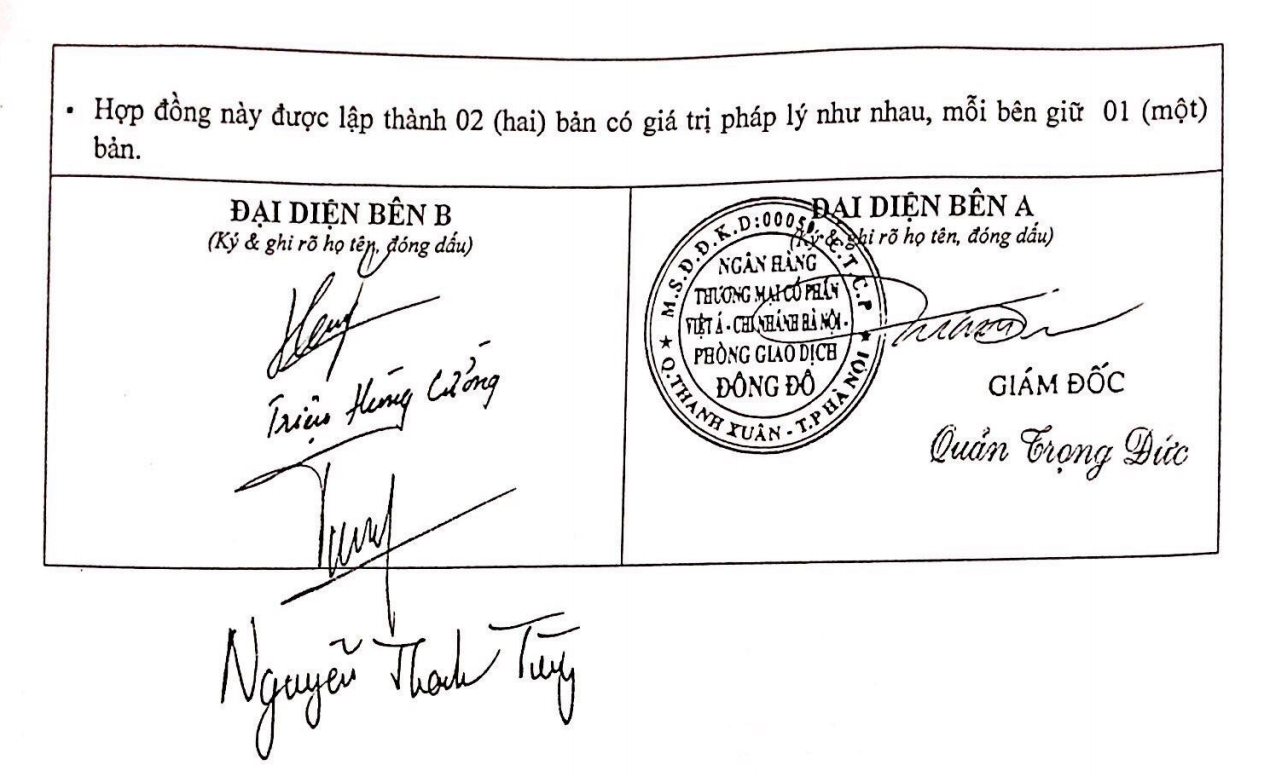 • Hợp đồng này được lập thành 02 (hai) bản có giá trị pháp lý như nhau, mỗi bên giữ 01 (một)
bản.
ĐẠI DIỆN BÊN B
(Ký & ghi rõ họ tên, đóng dấu)
Triệu Hùng Cường
Nguyễn Thanh Tùng
ĐẠI DIỆN BÊN A
(Ký & ghi rõ họ tên, đóng dấu)
M.S.Đ.Đ.K.D:0005
C.T.C.P
NGÂN HÀNG
THƯƠNG MẠI CỔ PHẦN
VIỆT Á - CHI NHÁNH HÀ NỘI -
PHÒNG GIAO DỊCH
ĐÔNG ĐÔ
★ Q.THANH XUÂN - T.P HÀ NỘI ★
GIÁM ĐỐC
Quản Trọng Đức